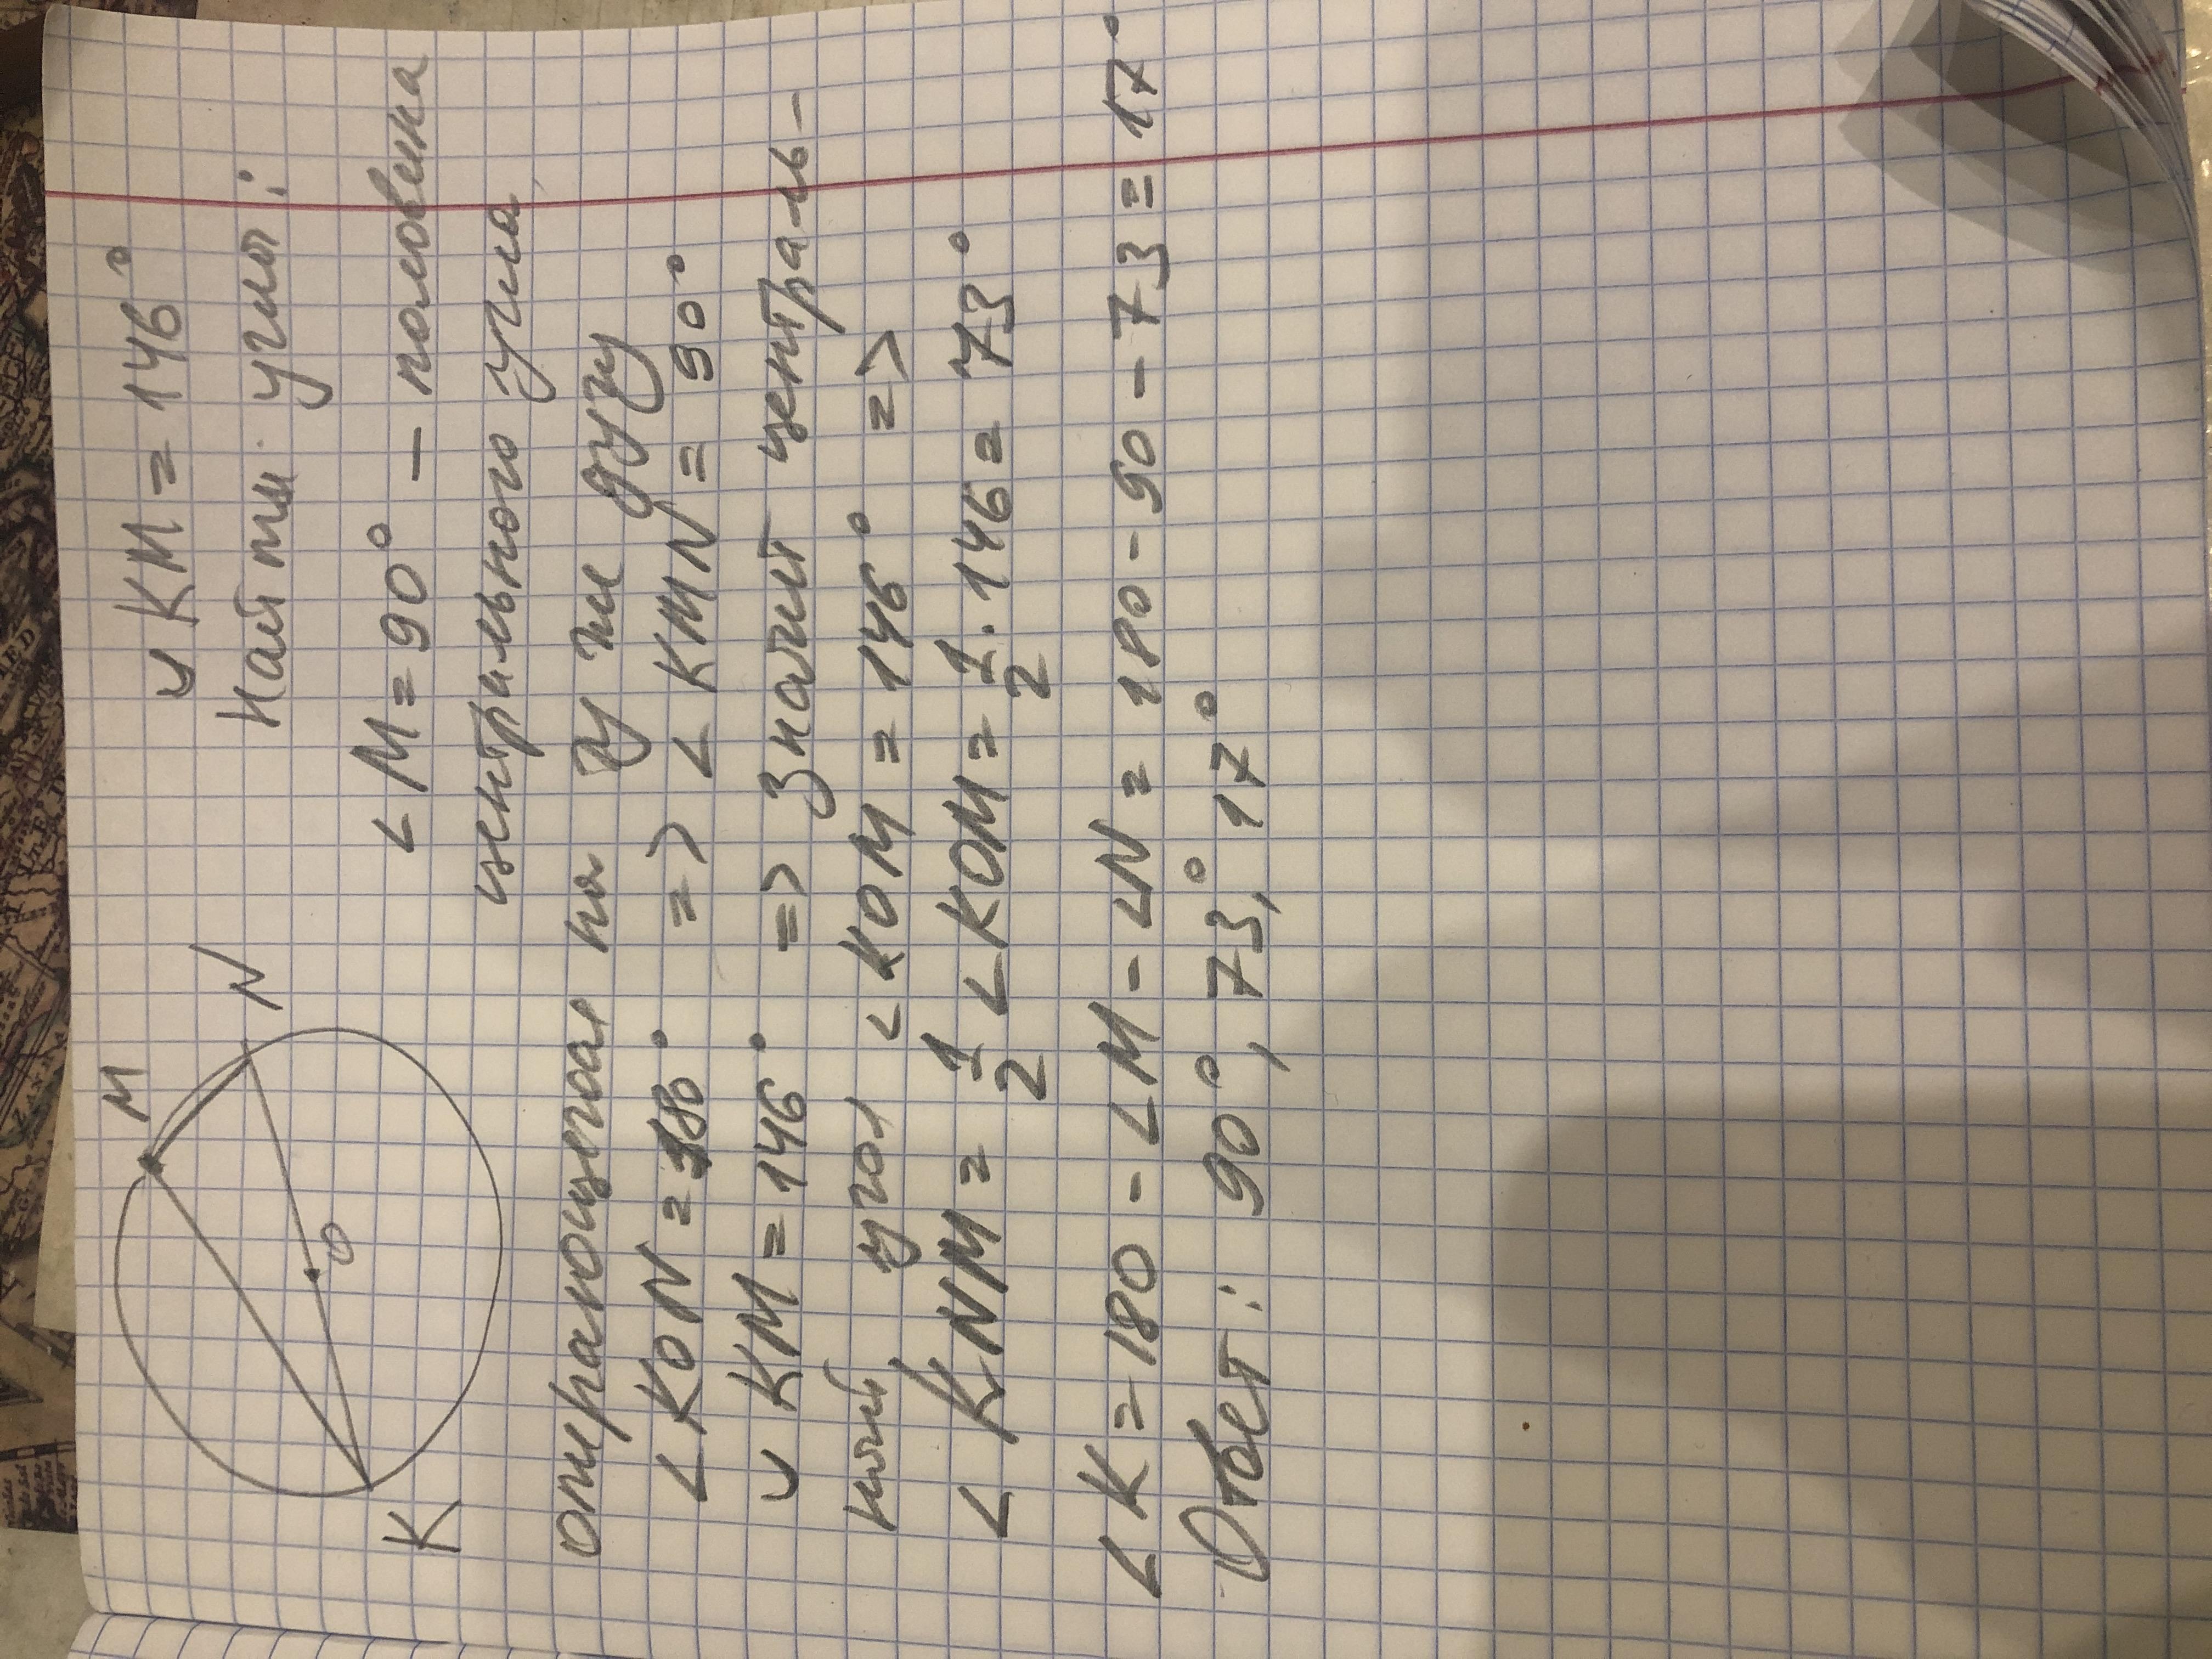 M
N
O
K
◡ KM = 146°
Найти углы:
∠M = 90° – половина
центрального угла,
опирающегося на ту же дугу
∠KON = 180° => ∠KMN = 90°
◡ KM = 146° => Значит централь-
ный угол ∠KOM = 146° =>
∠KNM = 1/2 ∠KOM = 1/2 · 146 = 73°
∠K = 180 - ∠M - ∠N = 180 - 90 - 73 = 17°
Ответ: 90°, 73°, 17°